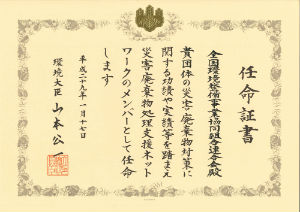 任命証書
全国環境整備事業協同組合連合会殿
貴団体の災害廃棄物対策に
関する功績や実績等を踏まえ
災害廃棄物処理支援ネット
ワークのメンバーとして任命
します
平成二十九年一月十七日
環境大臣 山本公一